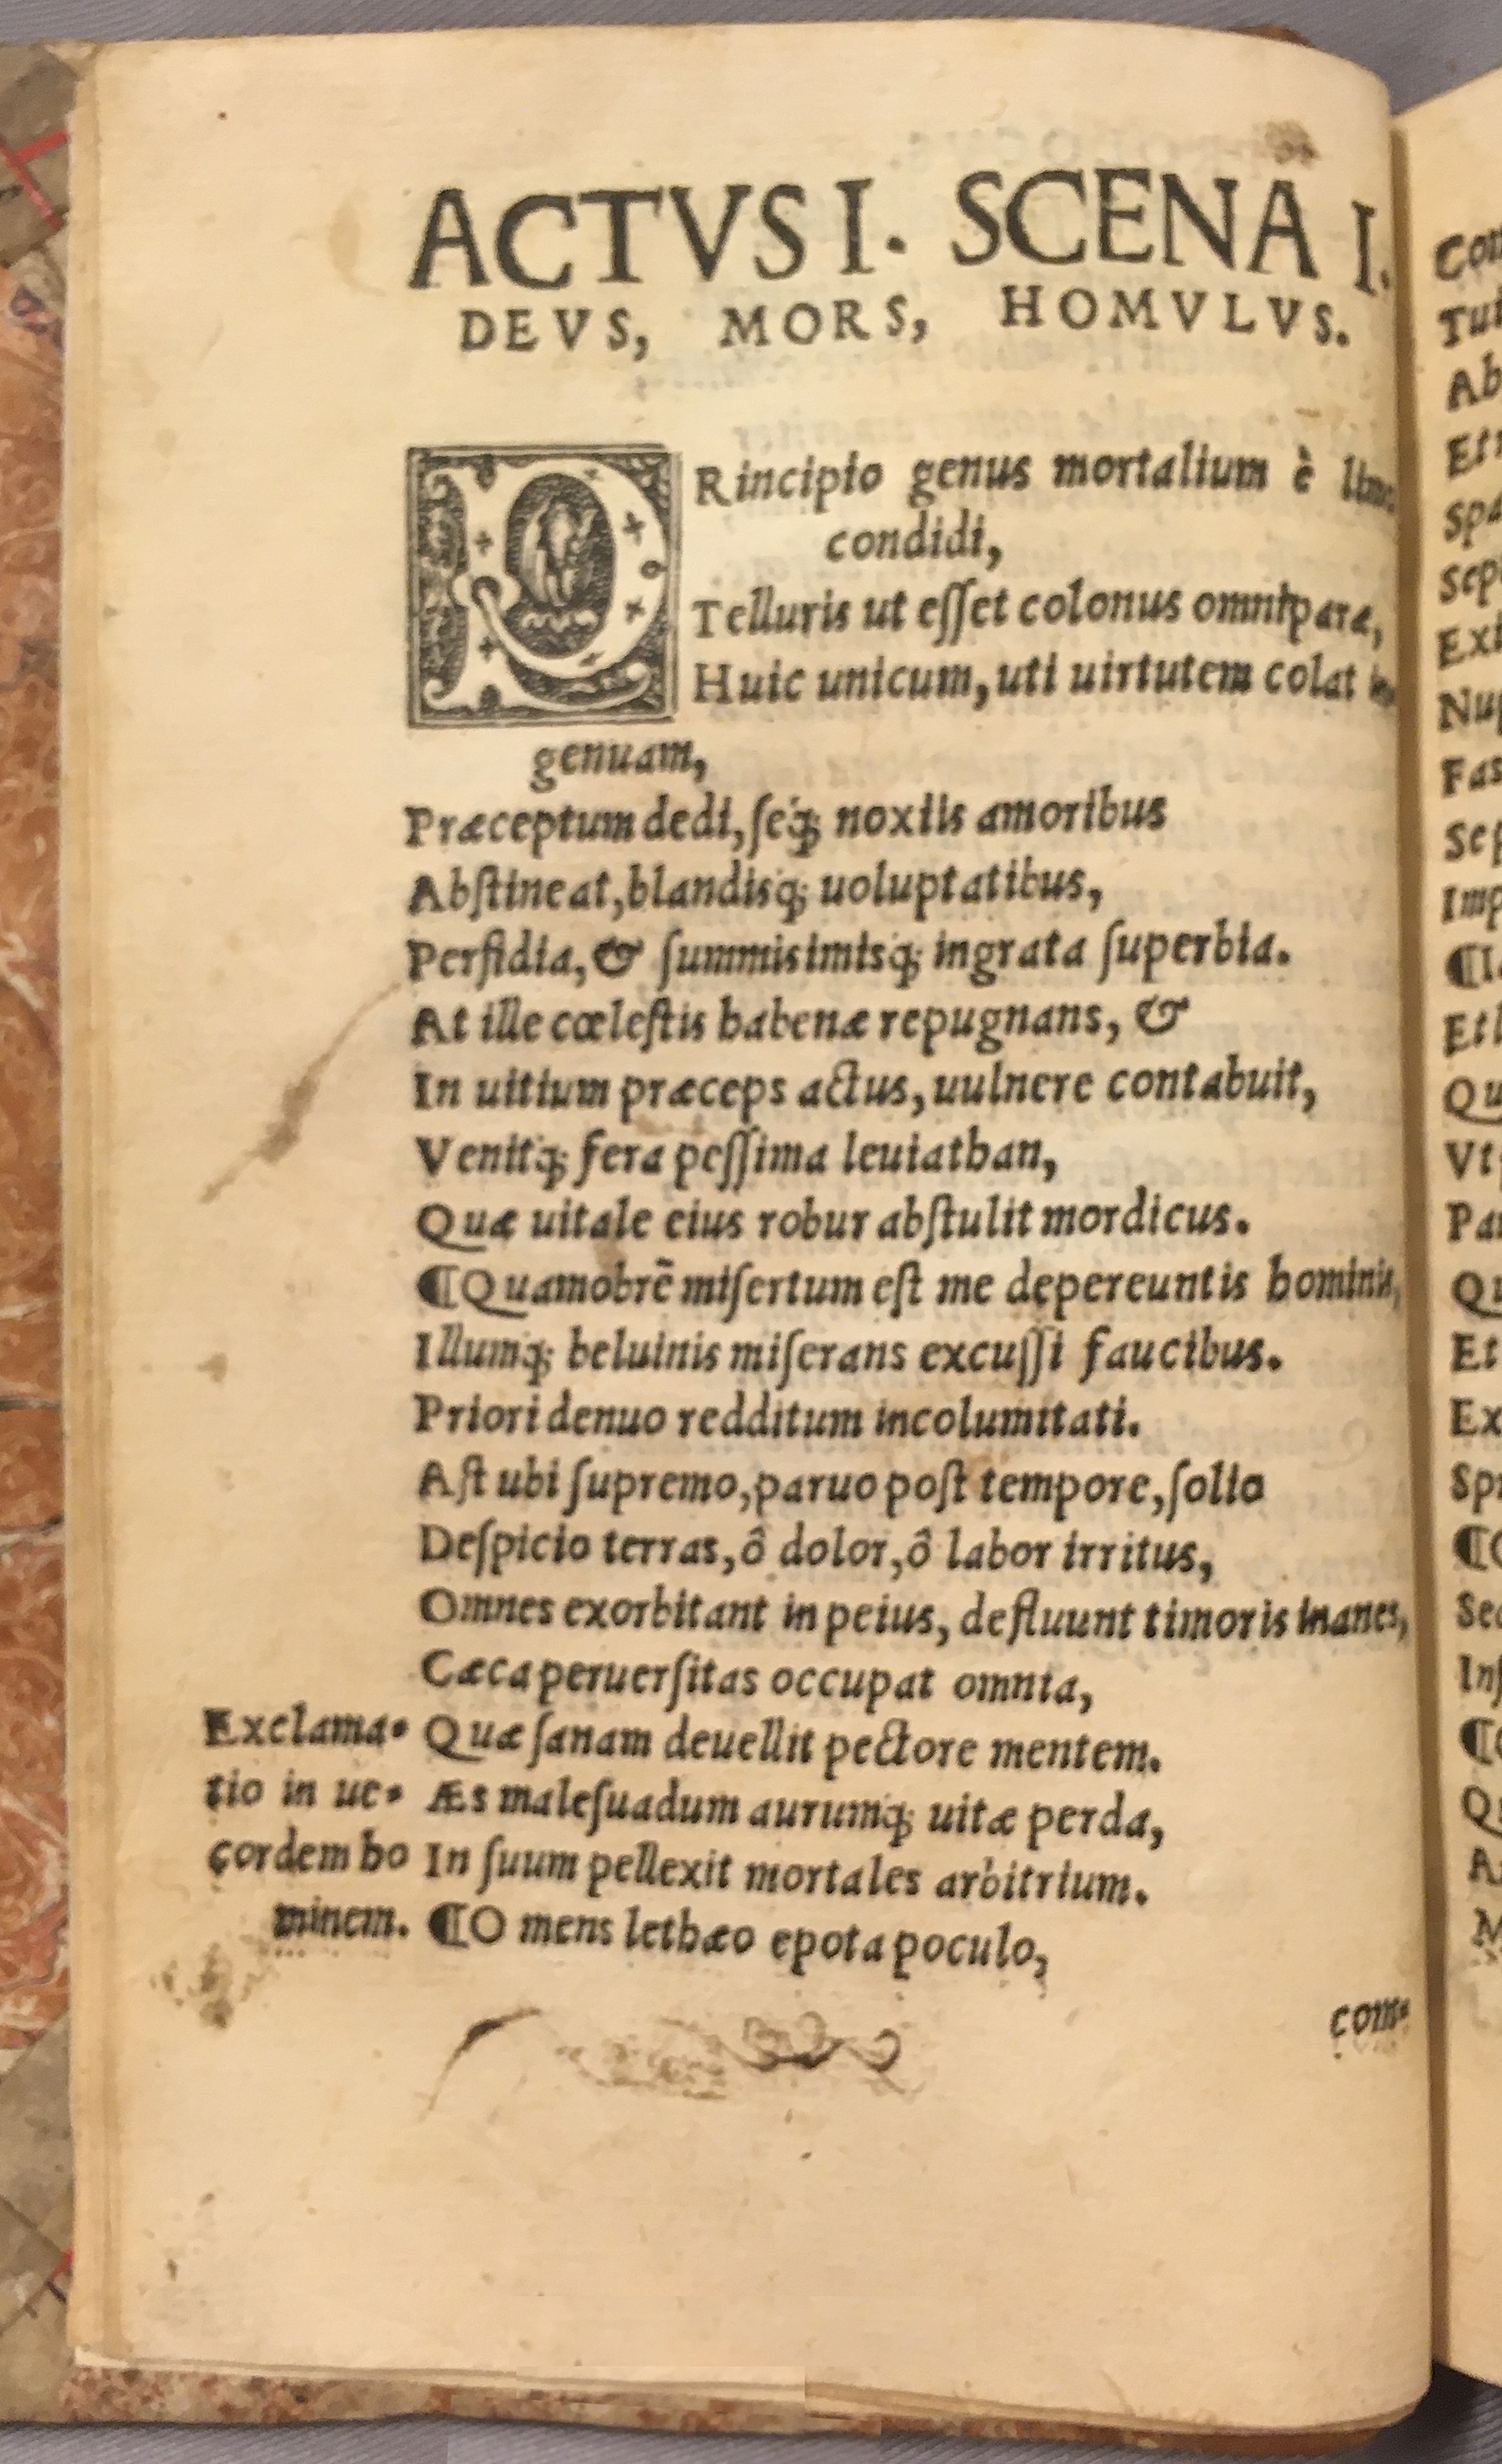 ACTVS I. SCENA I.
DEVS, MORS, HOMVLVS.
PRincipio genus mortalium è limo
condidi,
Telluris ut eſſet colonus omniparæ,
Huic unicum, uti uirtutem colat in
genuam,
Præceptum dedi, ſeq́; noxiis amoribus
Abſtineat, blandisq́; uoluptatibus,
Perfidia, & ſummis imisq́; ingrata ſuperbia.
At ille cœleſtis habenæ repugnans, &
In uitium præceps actus, uulnere contabuit,
Venitq́; fera peſſima leuiathan,
Quæ uitale eius robur abſtulit mordicus.
¶Quamobrē miſertum eſt me depereuntis hominis,
Illumq́; beluinis miſerans excuſſi faucibus.
Priori denuo redditum incolumitati.
Aſt ubi ſupremo, paruo poſt tempore, ſolio
Deſpicio terras, ô dolor, ô labor irritus,
Omnes exorbitant in peius, defluunt timoris inanes,
Cæca peruerſitas occupat omnia,
Quæ ſanam deuellit pectore mentem.
Æs maleſuadum aurumq́; uitæ perda,
In ſuum pellexit mortales arbitrium.
¶O mens lethæo epota poculo,
Exclama-
tio in ue-
cordem ho
minem.
com-
Con
Tut
Ab
Et
Spa
Sep
Exi
Nup
Fas
Sep
Imp
Et
Qu
Vt
Par
Qu
Et
Ex
Spi
Sed
Inſ
Qu
A
M